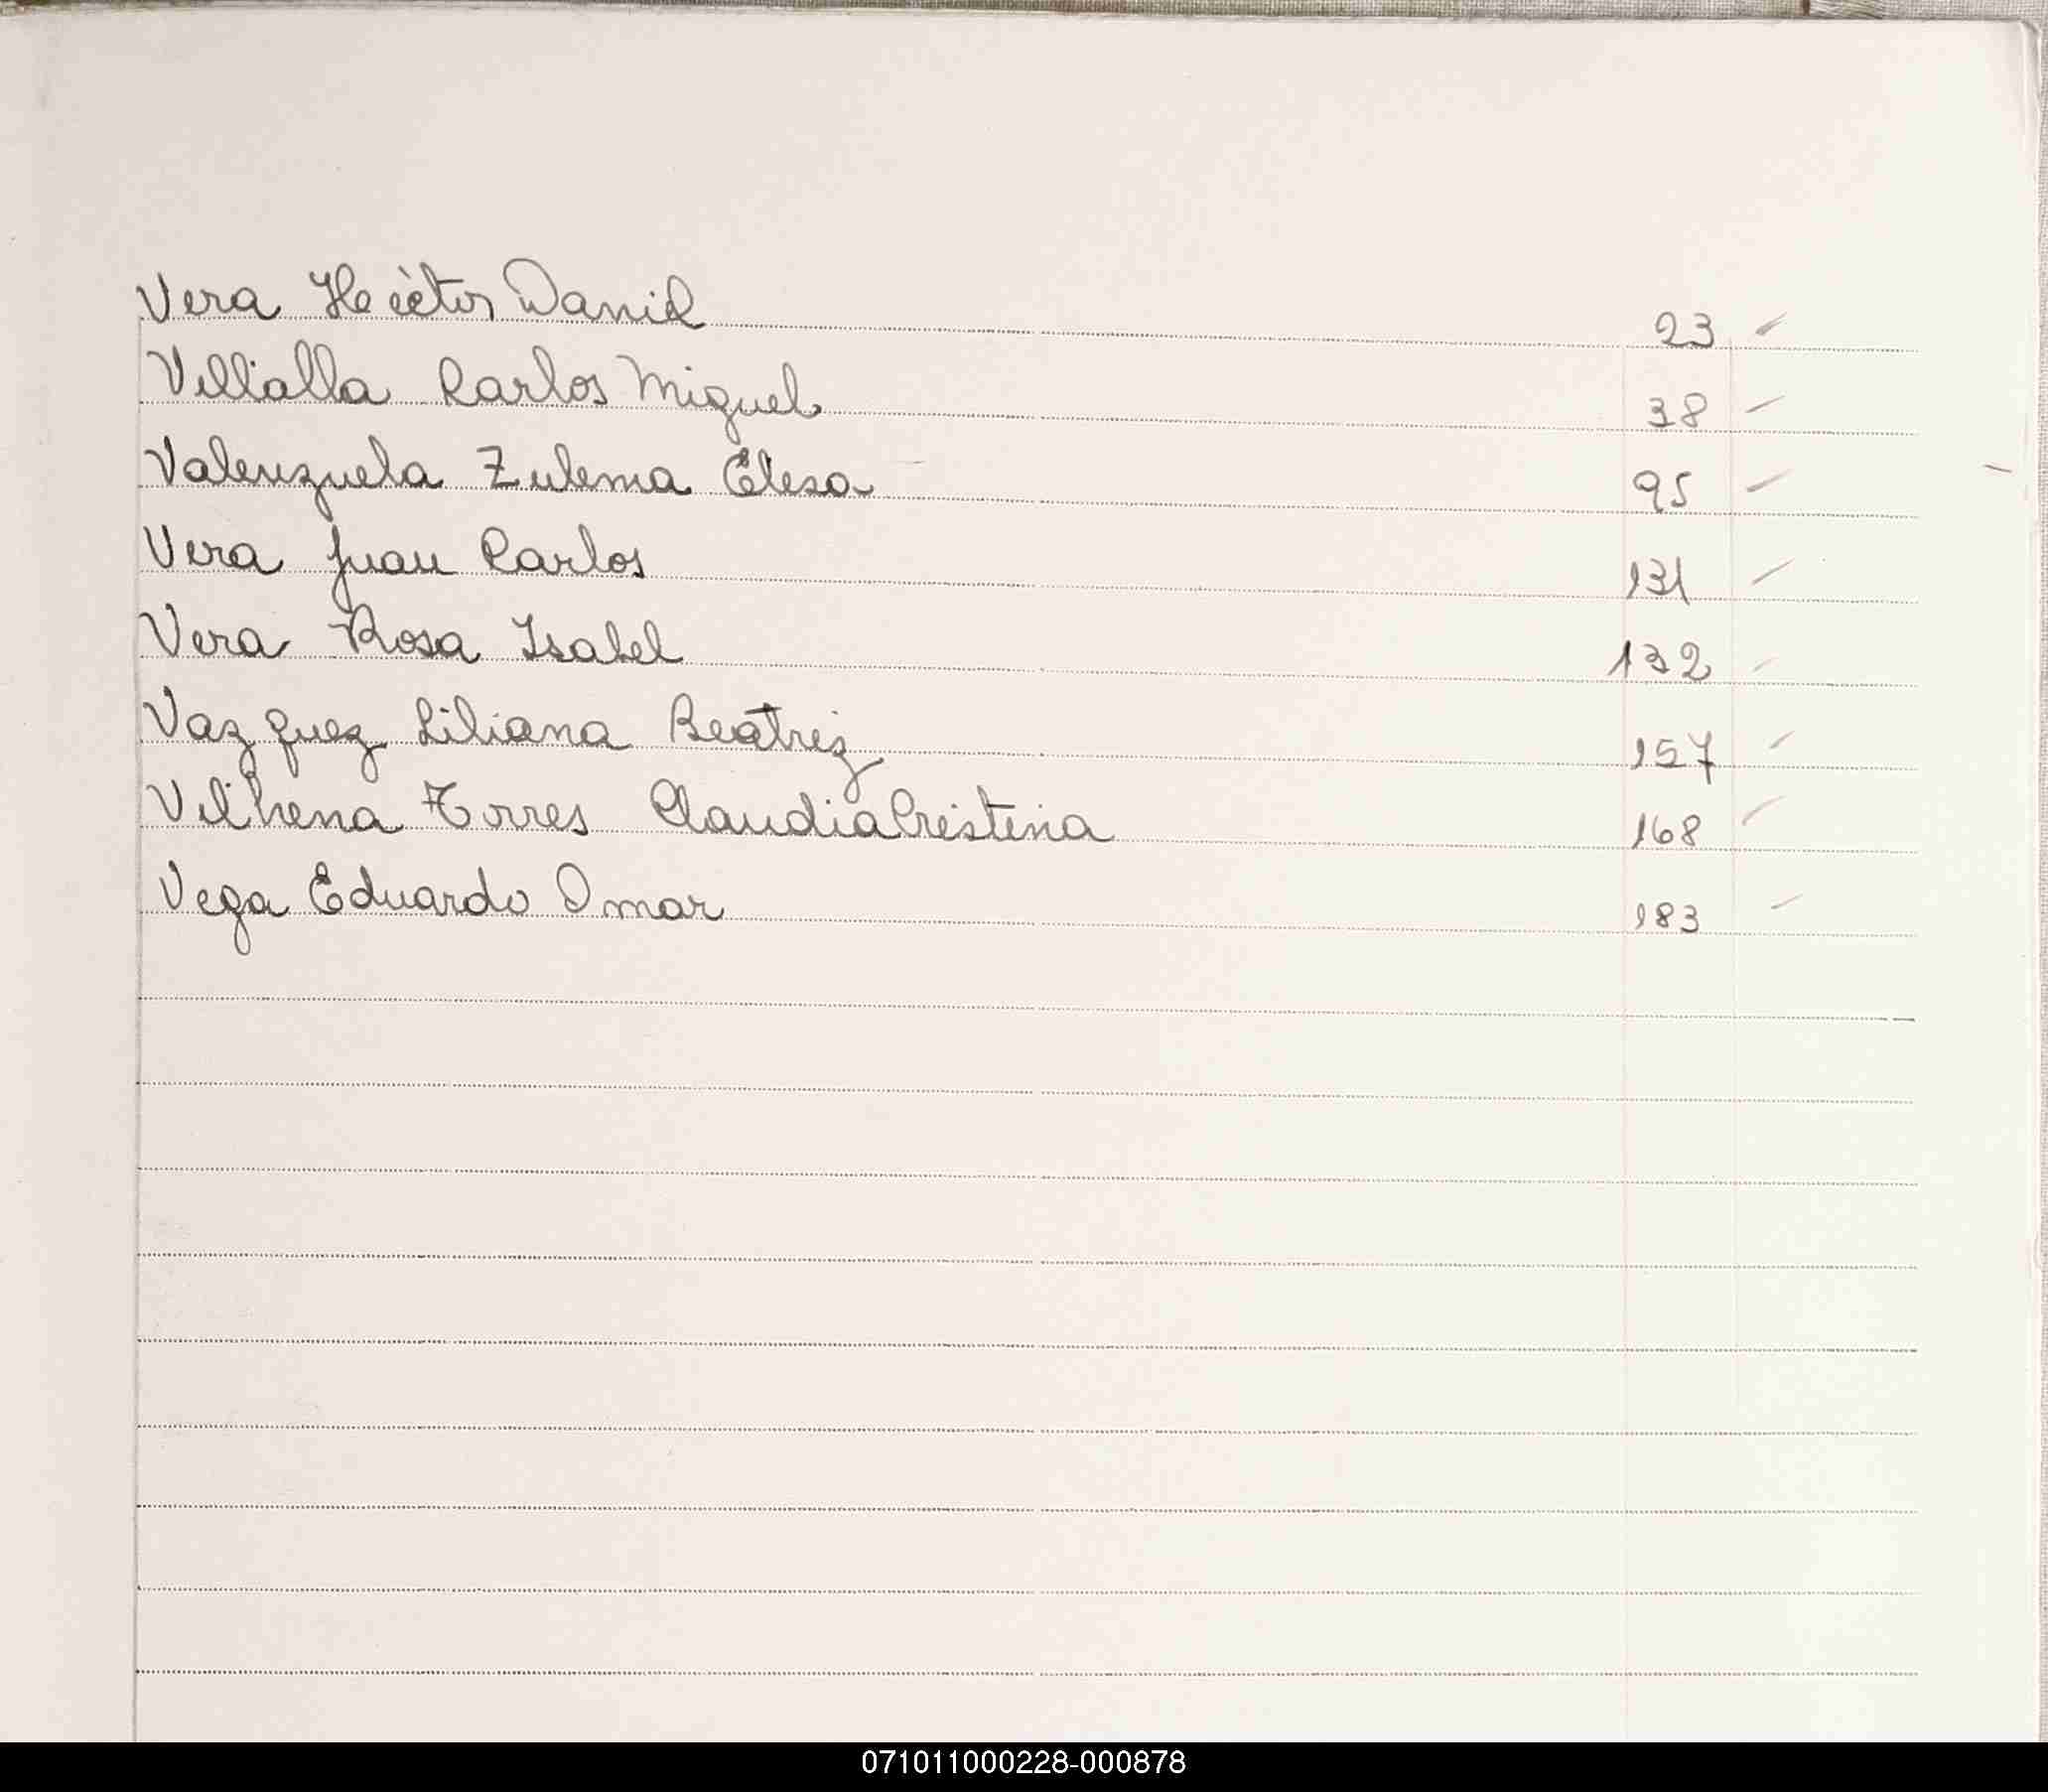 Vera Hèctor Daniel 23
Villalla Carlos Miguel 38
Valenzuela Zulema Elisa 95
Vera Juan Carlos 131
Vera Rosa Isabel 132
Vazquez Liliana Beatriz 157
Vilhena Torres Claudia Cristina 168
Vega Eduardo Omar 183
071011000228-000878